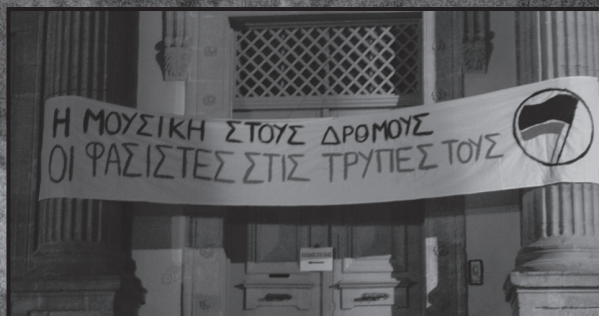 Η ΜΟΥΣΙΚΗ ΣΤΟΥΣ ΔΡΟΜΟΥΣ
ΟΙ ΦΑΣΙΣΤΕΣ ΣΤΙΣ ΤΡΥΠΕΣ ΤΟΥΣ